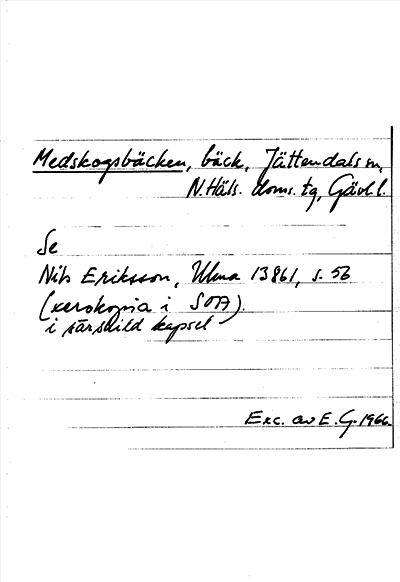 Medskogsbäcken, bäck, Jättendals sn,
N. Häls. doms. tg, Gävl. l.
Se
Nils Eriksson, Ulma 13861, s. 56
(xerokopia i SOA).
i särskild kapsel
Exc. av E. G. 1966.